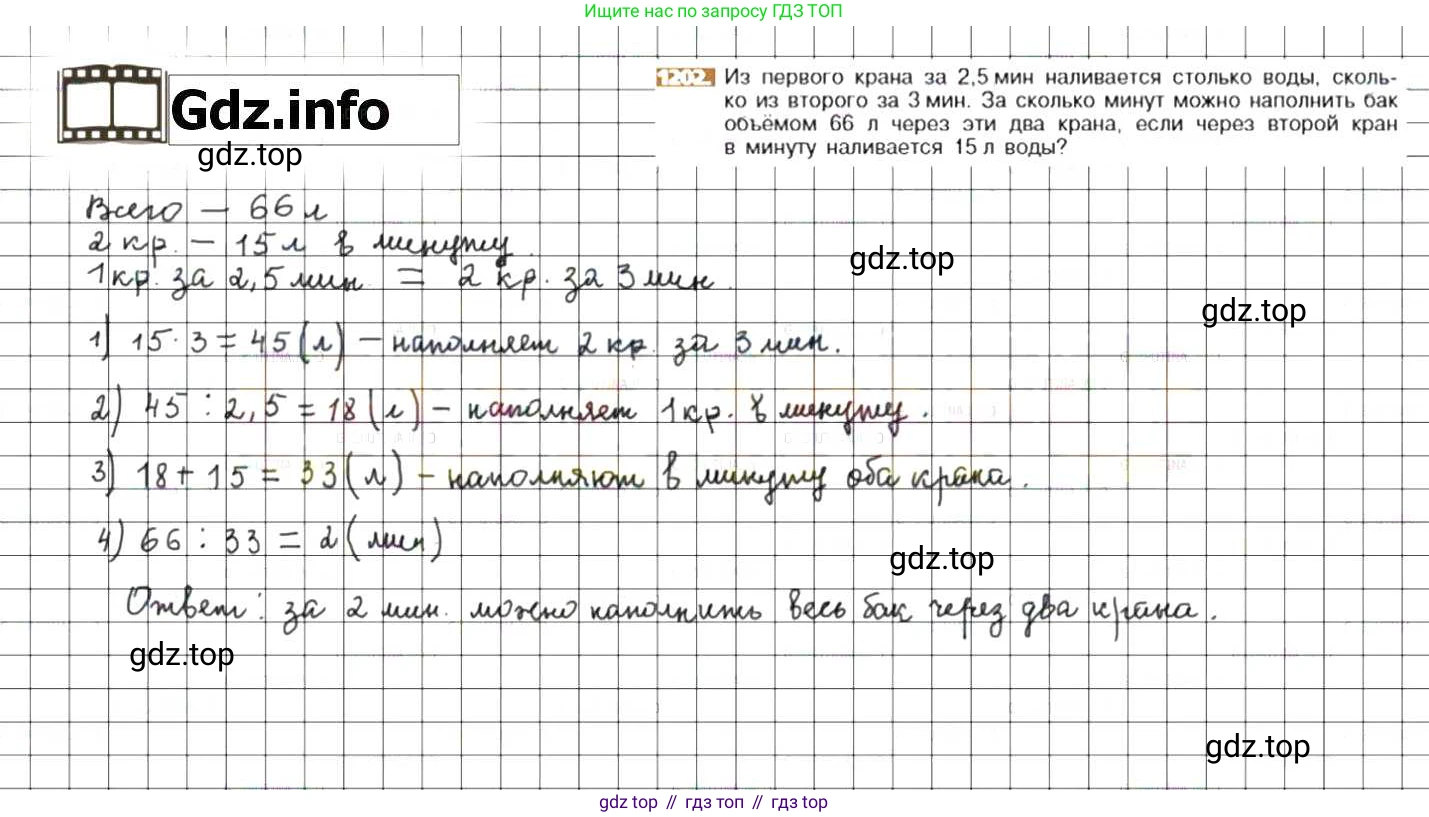 Ищите нас по запросу ГДЗ ТОП
Gdz.info
gdz.top
1202. Из первого крана за 2,5 мин наливается столько воды, сколь-
ко из второго за 3 мин. За сколько минут можно наполнить бак
объёмом 66 л через эти два крана, если через второй кран
в минуту наливается 15 л воды?
Всего – 66 л
2 кр. – 15 л в минуту.
gdz.top
1 кр. за 2,5 мин = 2 кр. за 3 мин.
gdz.top
1) 15 · 3 = 45 (л) – наполняет 2 кр. за 3 мин.
2) 45 : 2,5 = 18 (л) – наполняет 1 кр. в минуту.
3) 18 + 15 = 33 (л) – наполняют в минуту оба крана.
4) 66 : 33 = 2 (мин)
gdz.top
Ответ: за 2 мин. можно наполнить весь бак через два крана.
gdz.top
gdz.top
gdz top // гдз топ // gdz top